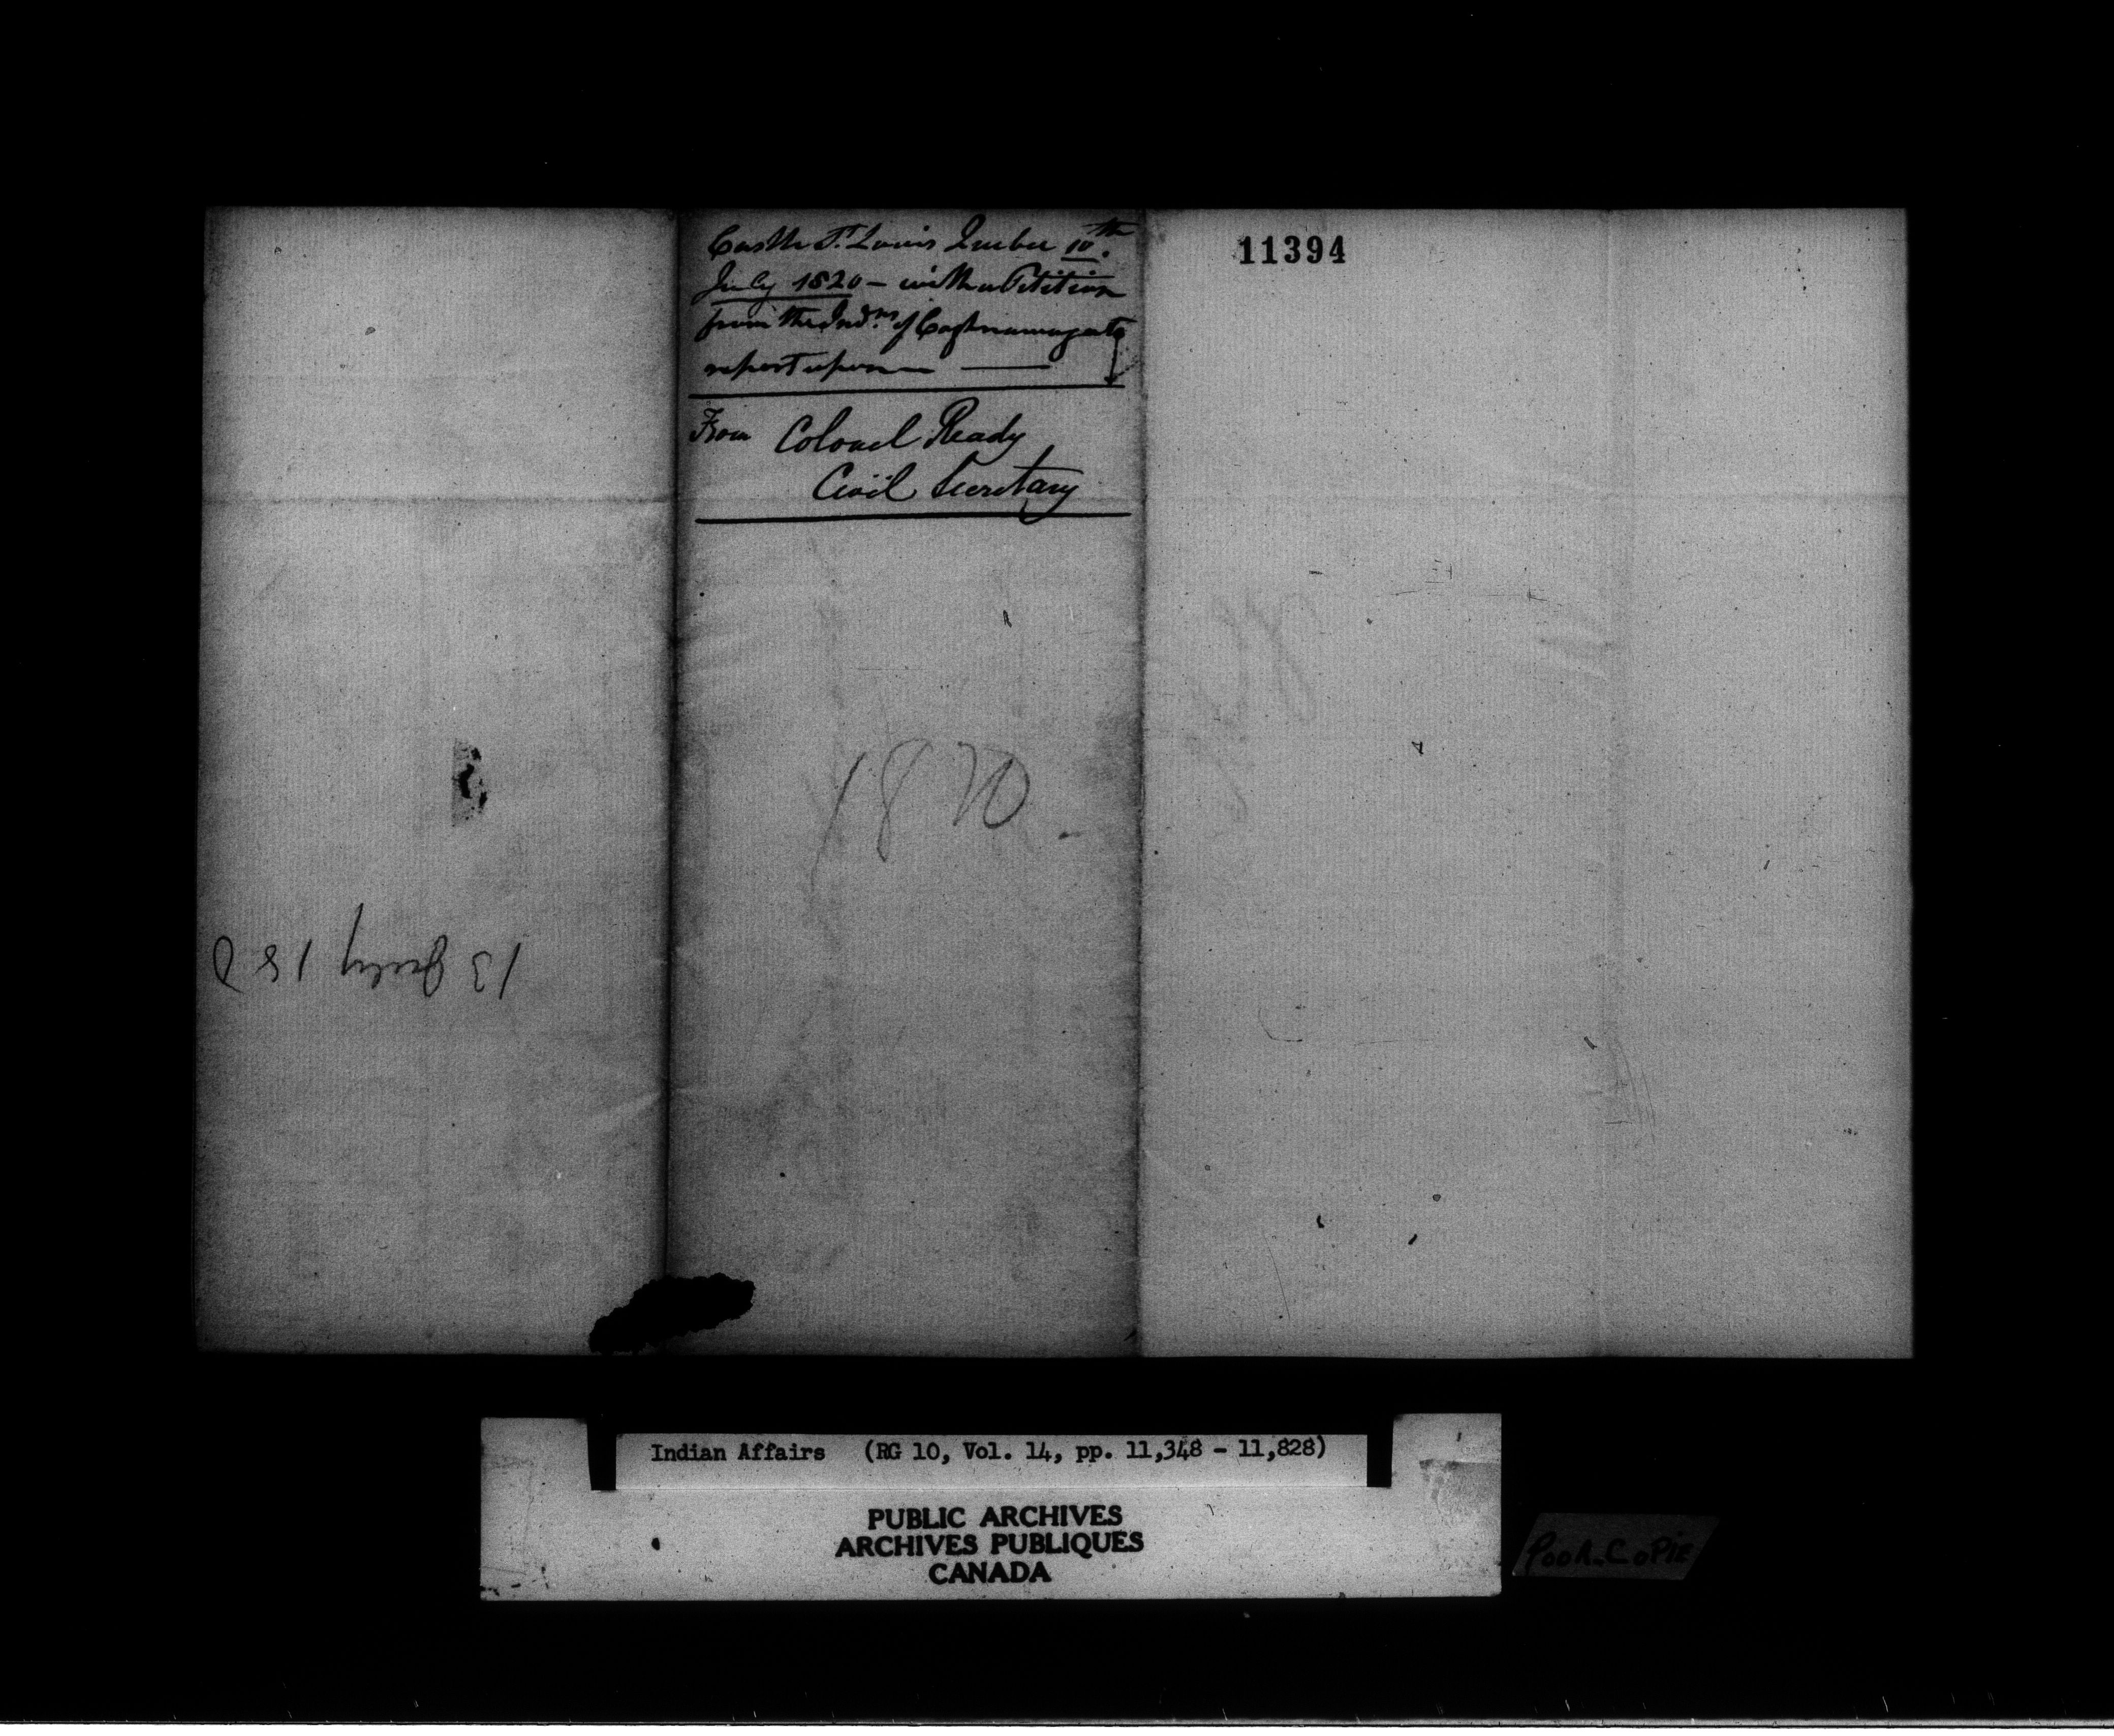 Castle St. Louis Quebec 10th.
July 1820 - with a Petition
from the Indns. of Caghnawaga to
report upon
From Colonel Ready
Civil Secretary
1820
11394
13 July 18
Indian Affairs (RG 10, Vol. 14, pp. 11,348 - 11,828)
PUBLIC ARCHIVES
ARCHIVES PUBLIQUES
CANADA
POOR COPIE